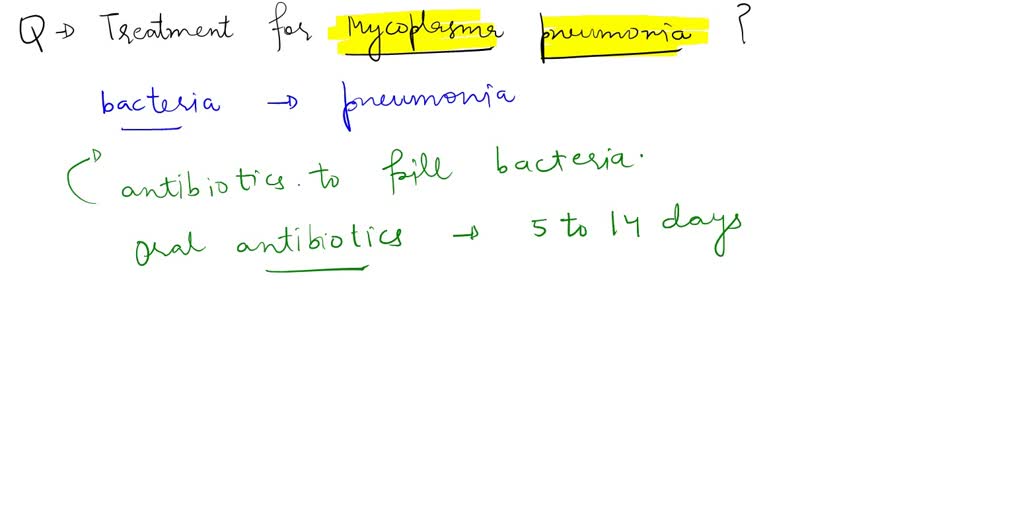 Q → Treatment for Mycoplasma pneumonia ?
bacteria → pneumonia
antibiotics. to kill bacteria.
oral antibiotics → 5 to 14 days